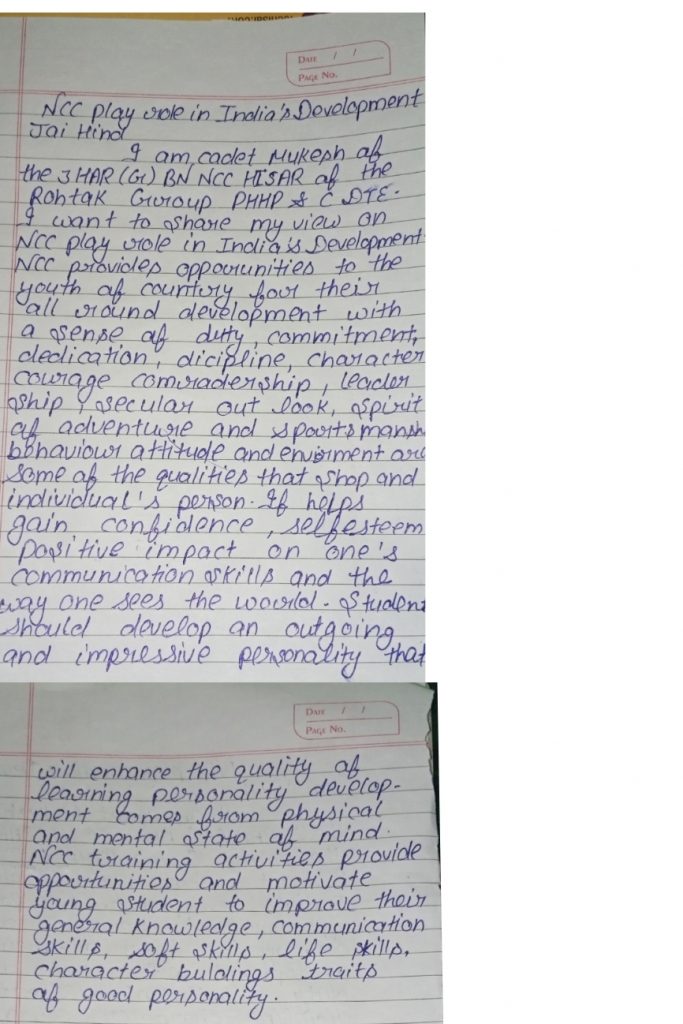 DATE / /
PAGE NO.
NCC play role in India's Development
Jai Hind
I am cadet Mukesh of
the 3 HAR (G) BN NCC HISAR of the
Rohtak Guroup PHHP & C DTE.
I want to share my view on
NCC play role in India's Development
NCC provides oppourunities to the
youth of country for their
all round development with
a sense of duty, commitment,
dedication, dicipline, character
courage comradership, leader
ship, secular out look, spirit
of adventure and sportsmansh
bbhaviour attitude and enviirment are
some of the qualities that shop and
individual's person. If helps
gain confidence, selfesteem
positive impact on one's
communication skills and the
way one sees the world. Student
should develop an outgoing
and impressive personality that
DATE / /
PAGE NO.
will enhance the quality of
learning personality develop-
ment comes from physical
and mental state of mind.
NCC training activities provide
oppourtunities and motivate
young student to improve their
general knowledge, communication
skills, soft skills, life skills,
character buldings traits
of good personality.